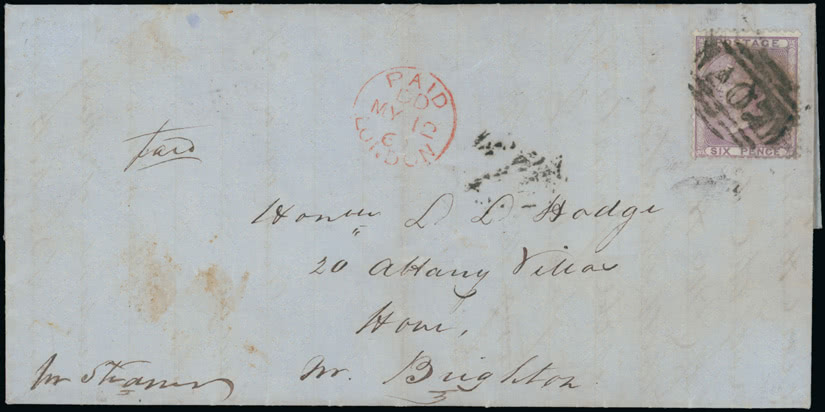 POSTAGE
SIX PENCE
PAID
MY 12
LONDON
Paid
Honble L L Hodge
20 Albany Villas
Hove,
Nr. Brighton
pr Steamer